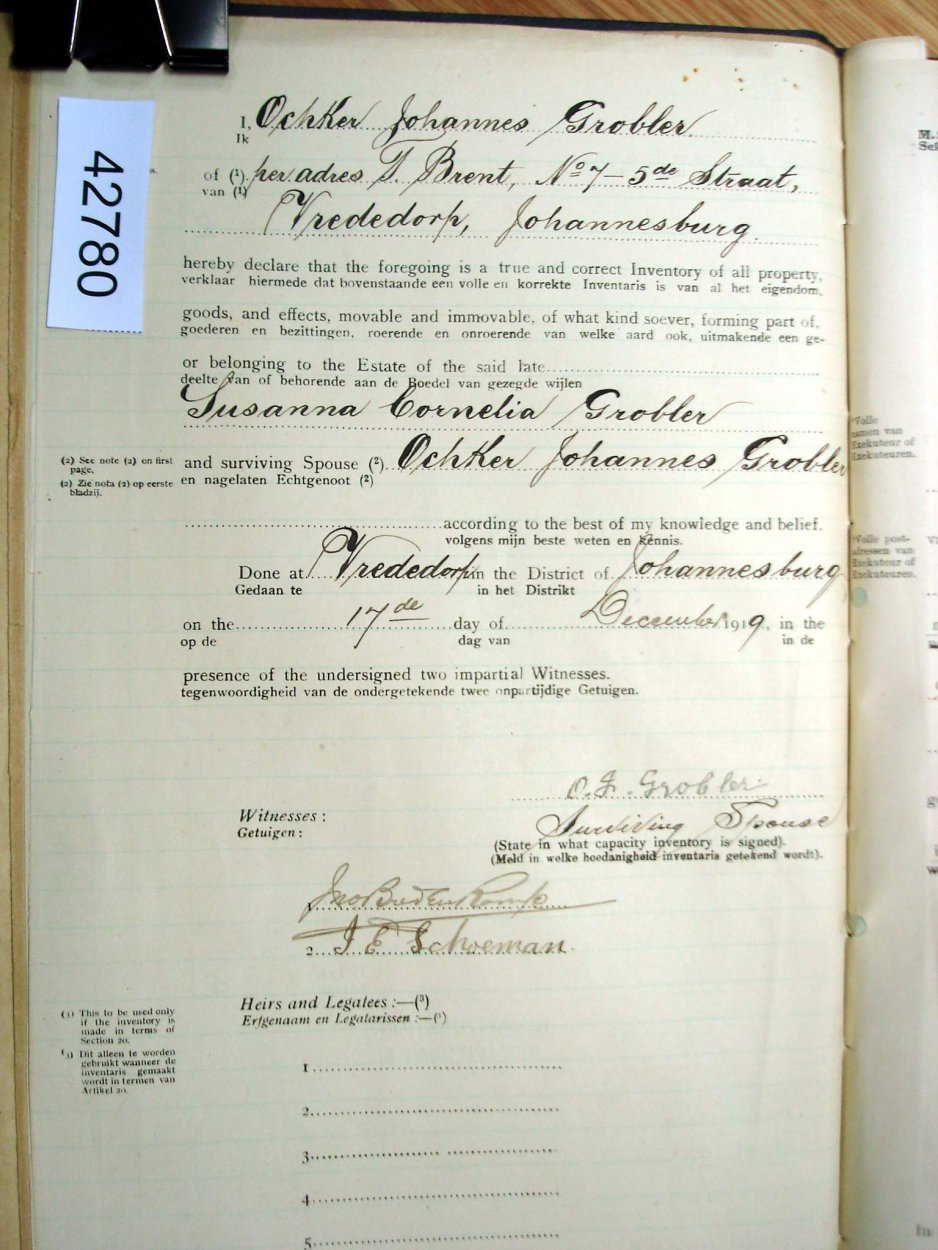 42780
I, Ochker Johannes Grobler
Ik
of (1) per adres T. Brent, No 7 – 5de Straat,
van (1)
Vrededorp, Johannesburg.
hereby declare that the foregoing is a true and correct Inventory of all property,
verklaar hiermede dat bovenstaande een volle en korrekte Inventaris is van al het eigendom,
goods, and effects, movable and immovable, of what kind soever, forming part of,
goederen en bezittingen, roerende en onroerende van welke aard ook, uitmakende een ge-
or belonging to the Estate of the said late
deelte van of behorende aan de Boedel van gezegde wijlen
Susanna Cornelia Grobler
(2) See note (2) on first
page.
(2) Zie nota (2) op eerste
bladzij.
and surviving Spouse (2) Ochker Johannes Grobler
en nagelaten Echtgenoot (2)
according to the best of my knowledge and belief.
volgens mijn beste weten en kennis.
Done at Vrededorp in the District of Johannesburg
Gedaan te in het Distrikt
on the 17de day of December 1919, in the
op de dag van in de
presence of the undersigned two impartial Witnesses.
tegenwoordigheid van de ondergetekende twee onpartijdige Getuigen.
O. J. Grobler
Witnesses :
Getuigen :
Surviving Spouse
(State in what capacity inventory is signed).
(Meld in welke hoedanigheid inventaris getekend wordt).
2. J E Schoeman
Heirs and Legatees :—(3)
Erfgenaam en Legatarissen :—(3)
(3) This to be used only
if the inventory is
made in terms of
Section 20.
(3) Dit alleen te worden
gebruikt wanneer de
inventaris gemaakt
wordt in termen van
Artikel 20.
1
2
3
4
5
Volle
namen van
Exekuteur of
Exekuteuren.
Volle post-
adressen van
Exekuteur of
Exekuteuren.